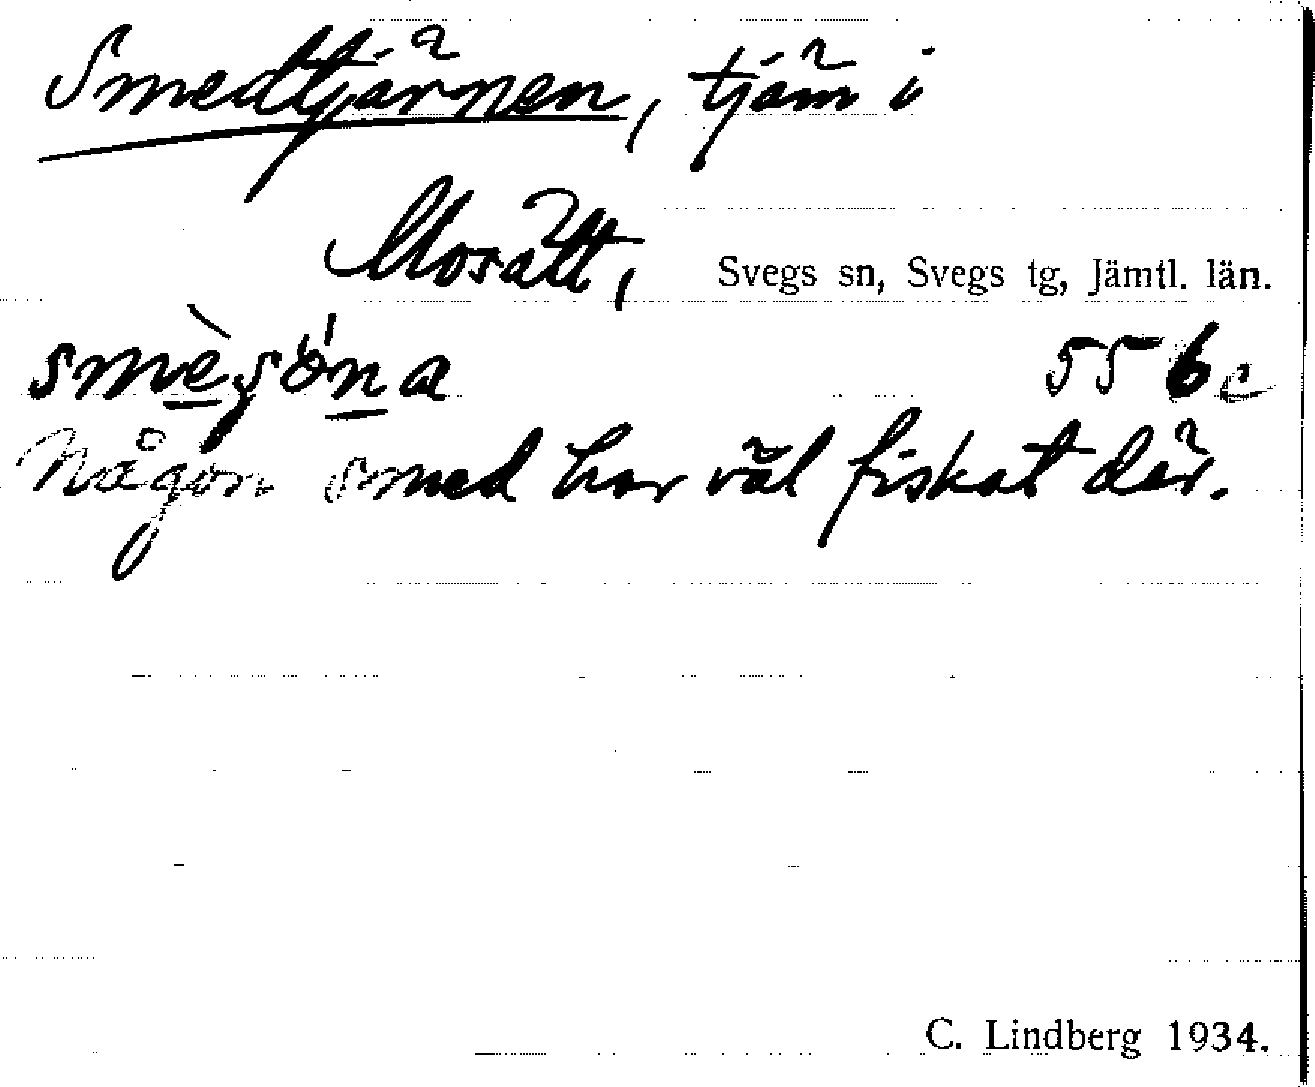 Smedtjärnen, tjärn i
Morätt, Svegs sn, Svegs tg, Jämtl. län.
556c
Någon smed har väl fiskat där.
C. Lindberg 1934.